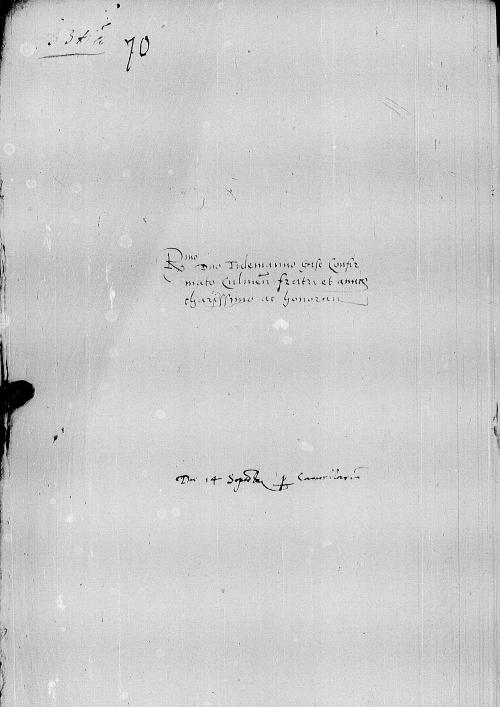 70
R mo Dno Tidemanno Gise Confir
mato Culmen fratri et amico
charissimo ac honoran
14 Septembr